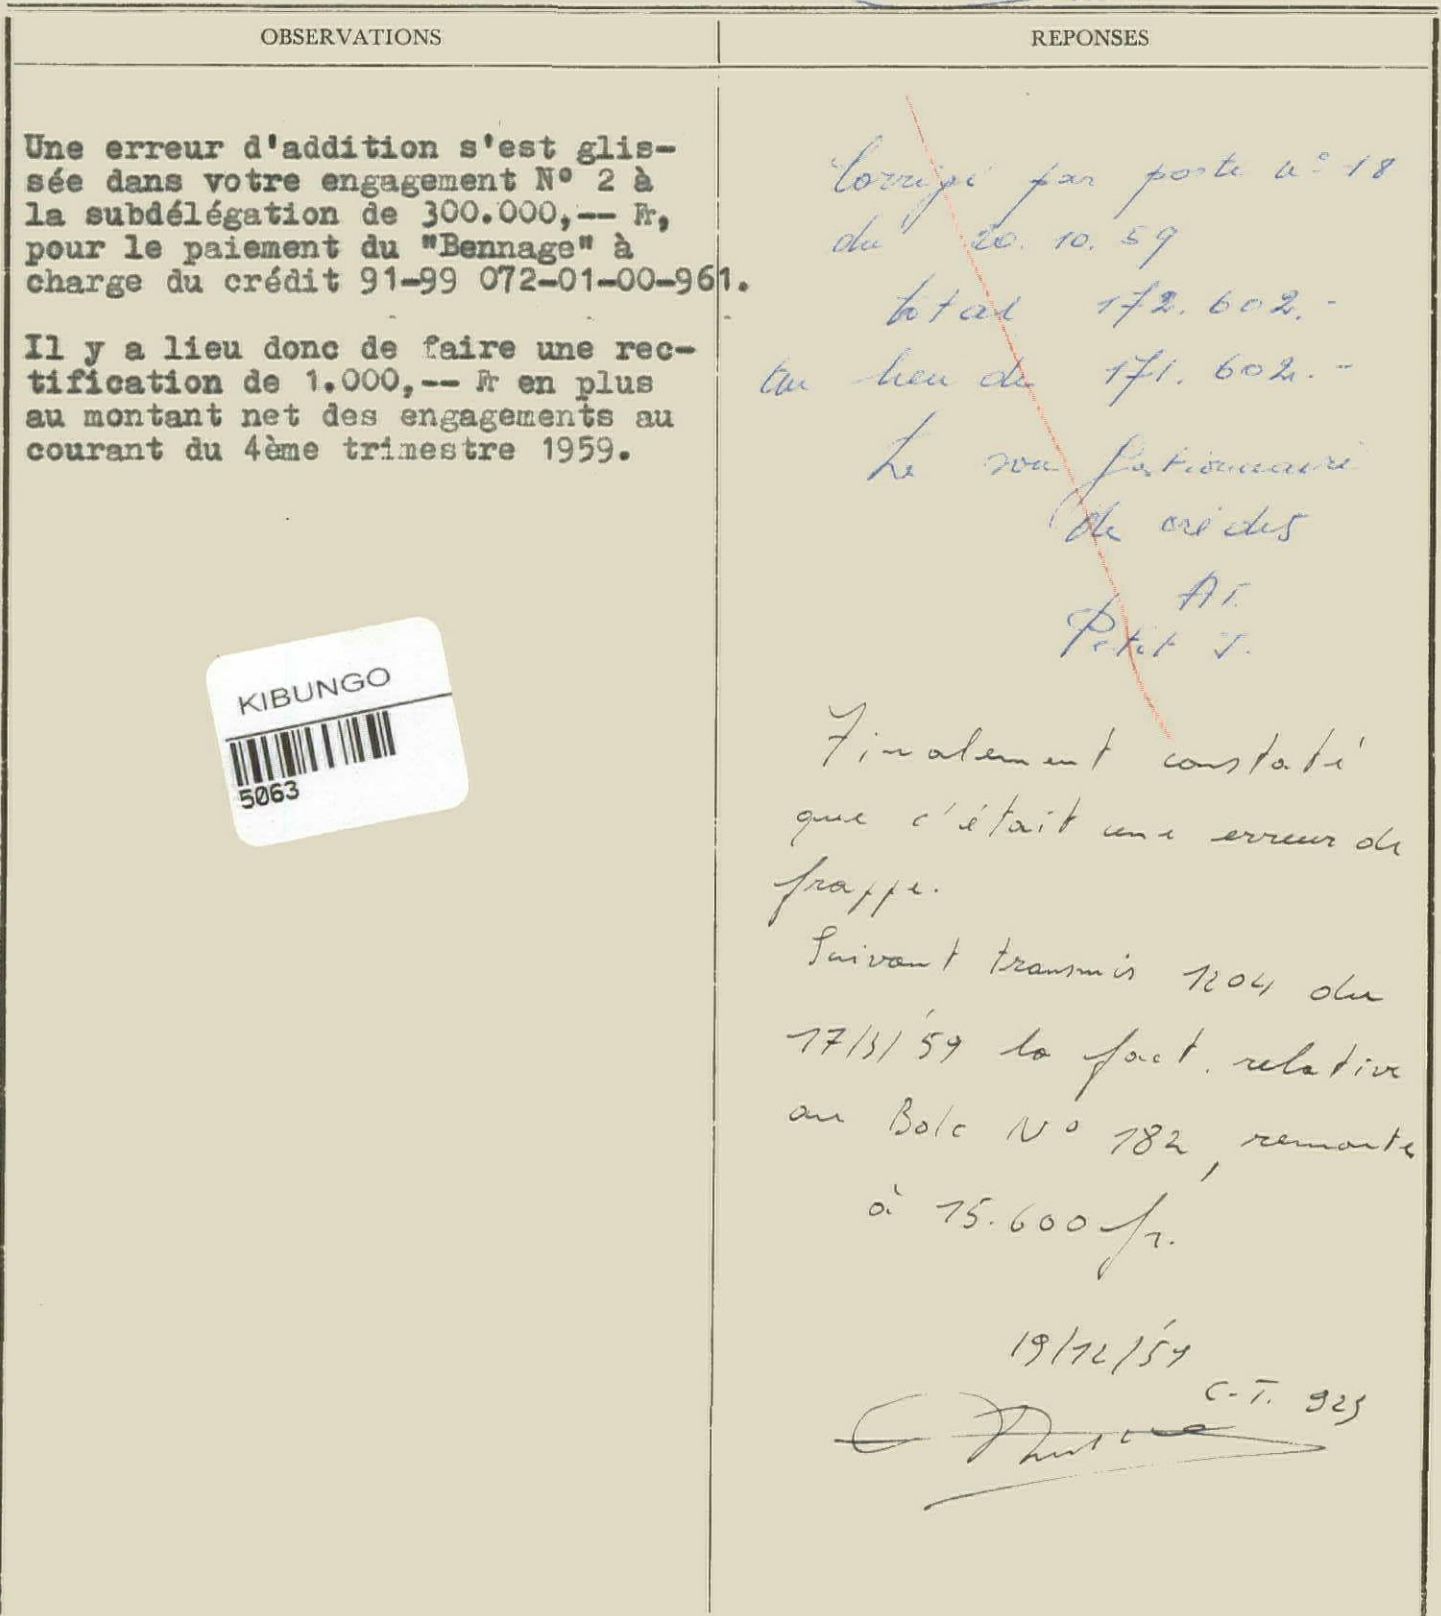 OBSERVATIONS
REPONSES
Une erreur d'addition s'est glis-
sée dans votre engagement N° 2 à
la subdélégation de 300.000,-- Fr,
pour le paiement du "Bennage" à
charge du crédit 91-99 072-01-00-961.
Il y a lieu donc de faire une rec-
tification de 1.000,-- Fr en plus
au montant net des engagements au
courant du 4ème trimestre 1959.
KIBUNGO
5063
Corrigé par poste n° 18
du 20. 10. 59
total 172. 602. -
au lieu de 171. 602. -
Le sou Gestionnaire
de crédits
AT.
Petit J.
Finalement constaté
que c'était une erreur de
frappe.
Suivant transmis 1204 du
17/3/59 la fact. relative
au Bolc N° 182, remonte
à 15.600 fr.
19/12/59
C.T.